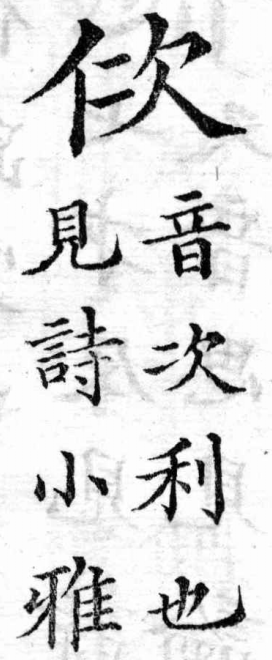 佽
音次利也
見詩小雅